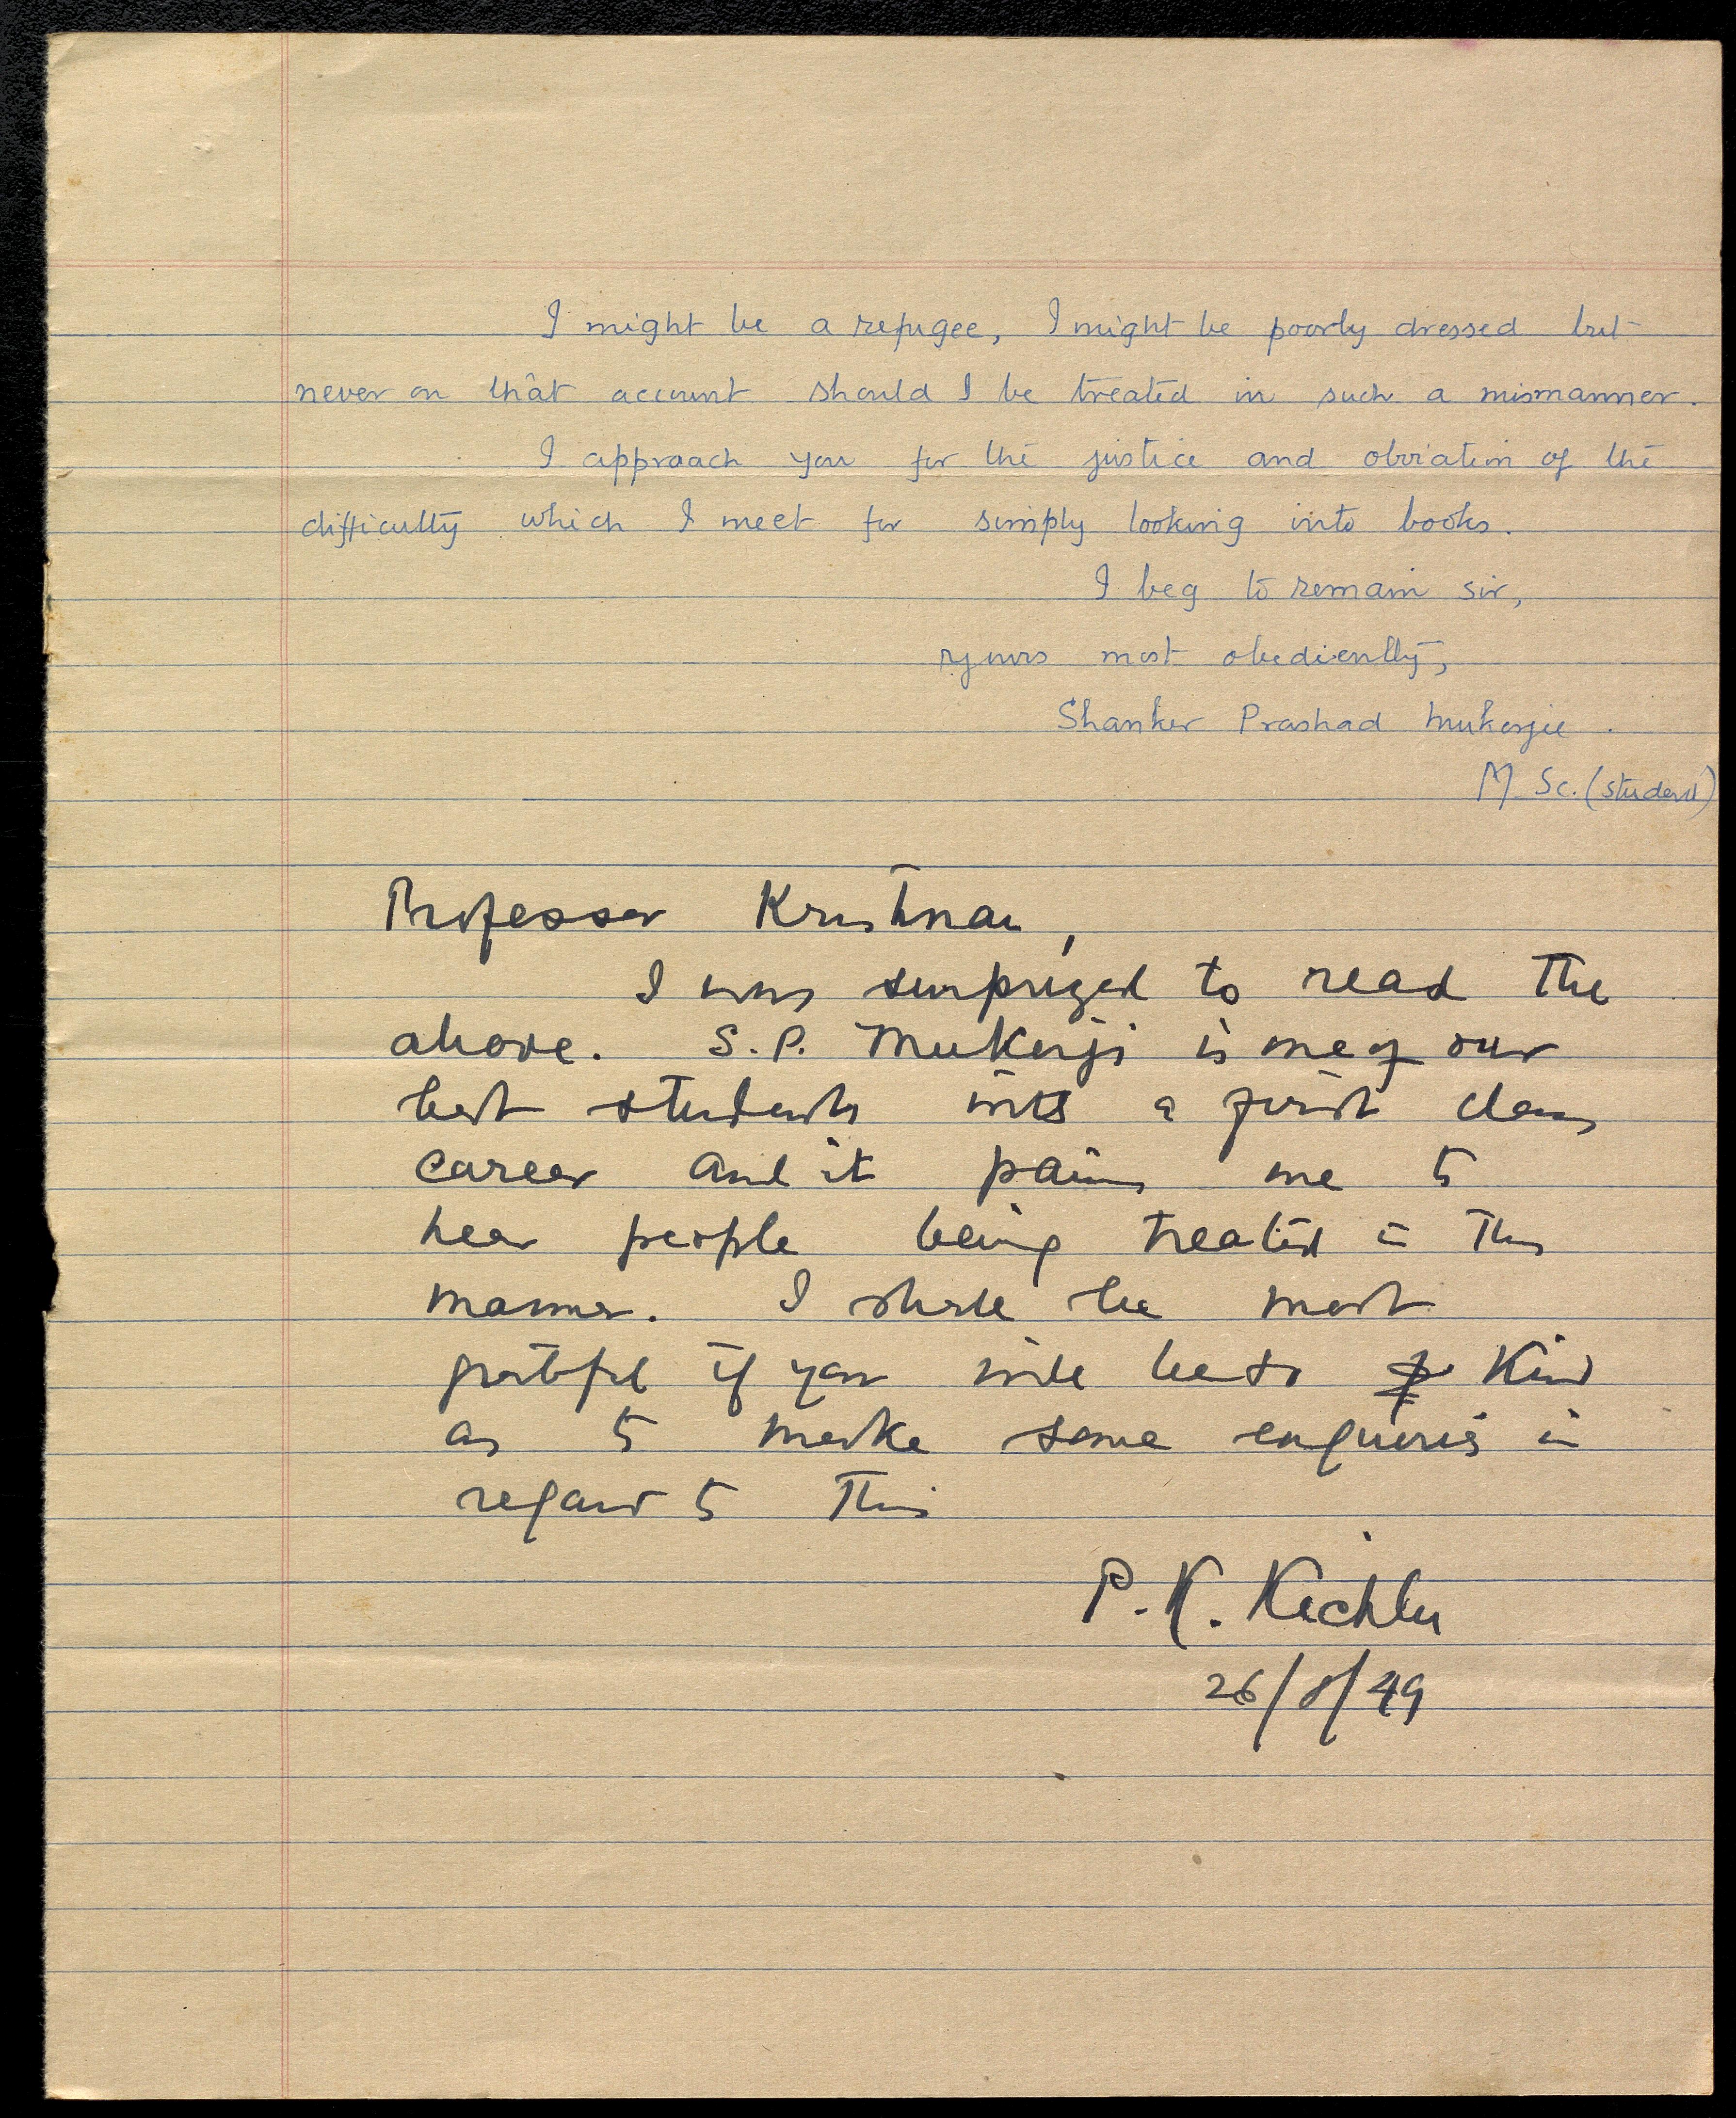 I might be a refugee, I might be poorly dressed but
never on that account should I be treated in such a mismanner.
I appraach you for the justice and obviation of the
difficulty which I meet for simply looking into books.
I beg to remain sir,
yours most obediently,
Shanker Prashad Mukerjee.
M. Sc. (student)
Professor Krishnan,
I was surprized to read the
above. S.P. Mukerji is one of our
best students with a first class
career and it pains me to
hear people being treated in this
manner. I shall be most
grateful if you will be so kind
as to make some enquiries in
regard to this
P. K. Kichlu
26/8/49